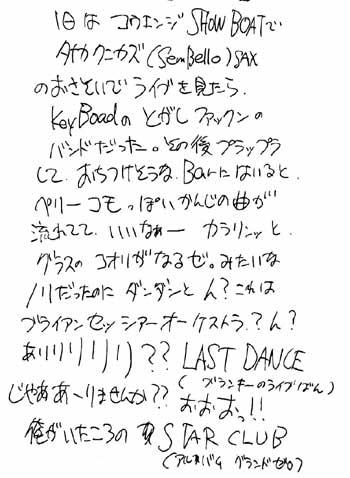 1日は コウエンジ SHOW BOATで
タナカ クニカズ(SemBello)SAX
のおさそいで ライブを見たら、
KeyBoadの とがし ファックンの
バンドだった。その後プラップラ
して、おちつけそうな、Barにはいると、
ペリー コモっぽい かんじの曲が
流れてて、いいなぁー カラリンッと、
グラスの コオリがなるぜ。みたいな
ノリだったのに ダンダンと ん?これは
ブライアンセッツァーオーケストラ?ん?
ありりりりりり)?? LAST DANCE
(ブランキーのライブばん)
じゃああ〜りませんか?? おおおっ!!
俺がいたころの STAR CLUB
(アルバム グランドゼロ)